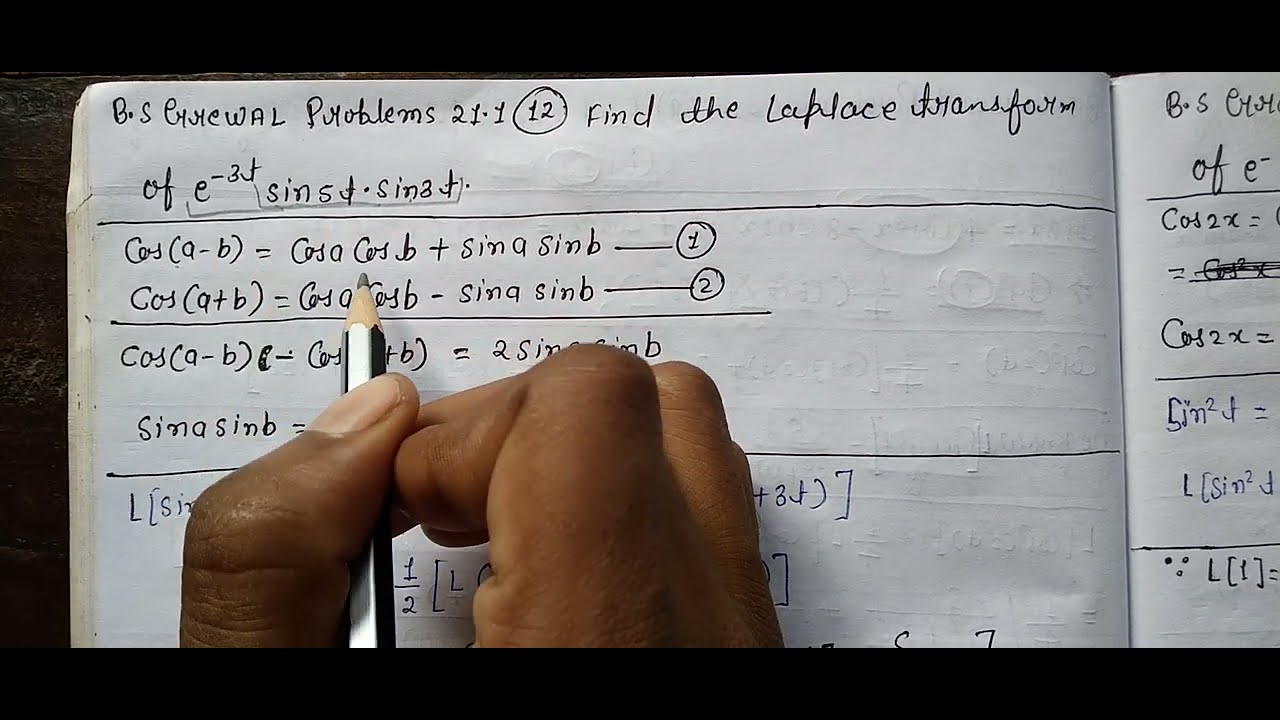 B.S GrewAL Problems 21.1 (12) Find the Laplace transform
of e^-3t sin5t. sin3t.
Cos(a-b) = Cosa Cosb + sina sinb — (1)
Cos(a+b) = Cosa Cosb - sina sinb — (2)
Cos(a-b) - Cos +b) = 2sin sinb
sina sinb =
L[sin +3t)]
1/2 [L )]
B.S
of e-
Cos2x =
= Cos²x
Cos2x =
Sin²t =
L[Sin²t
∵ L[1]=